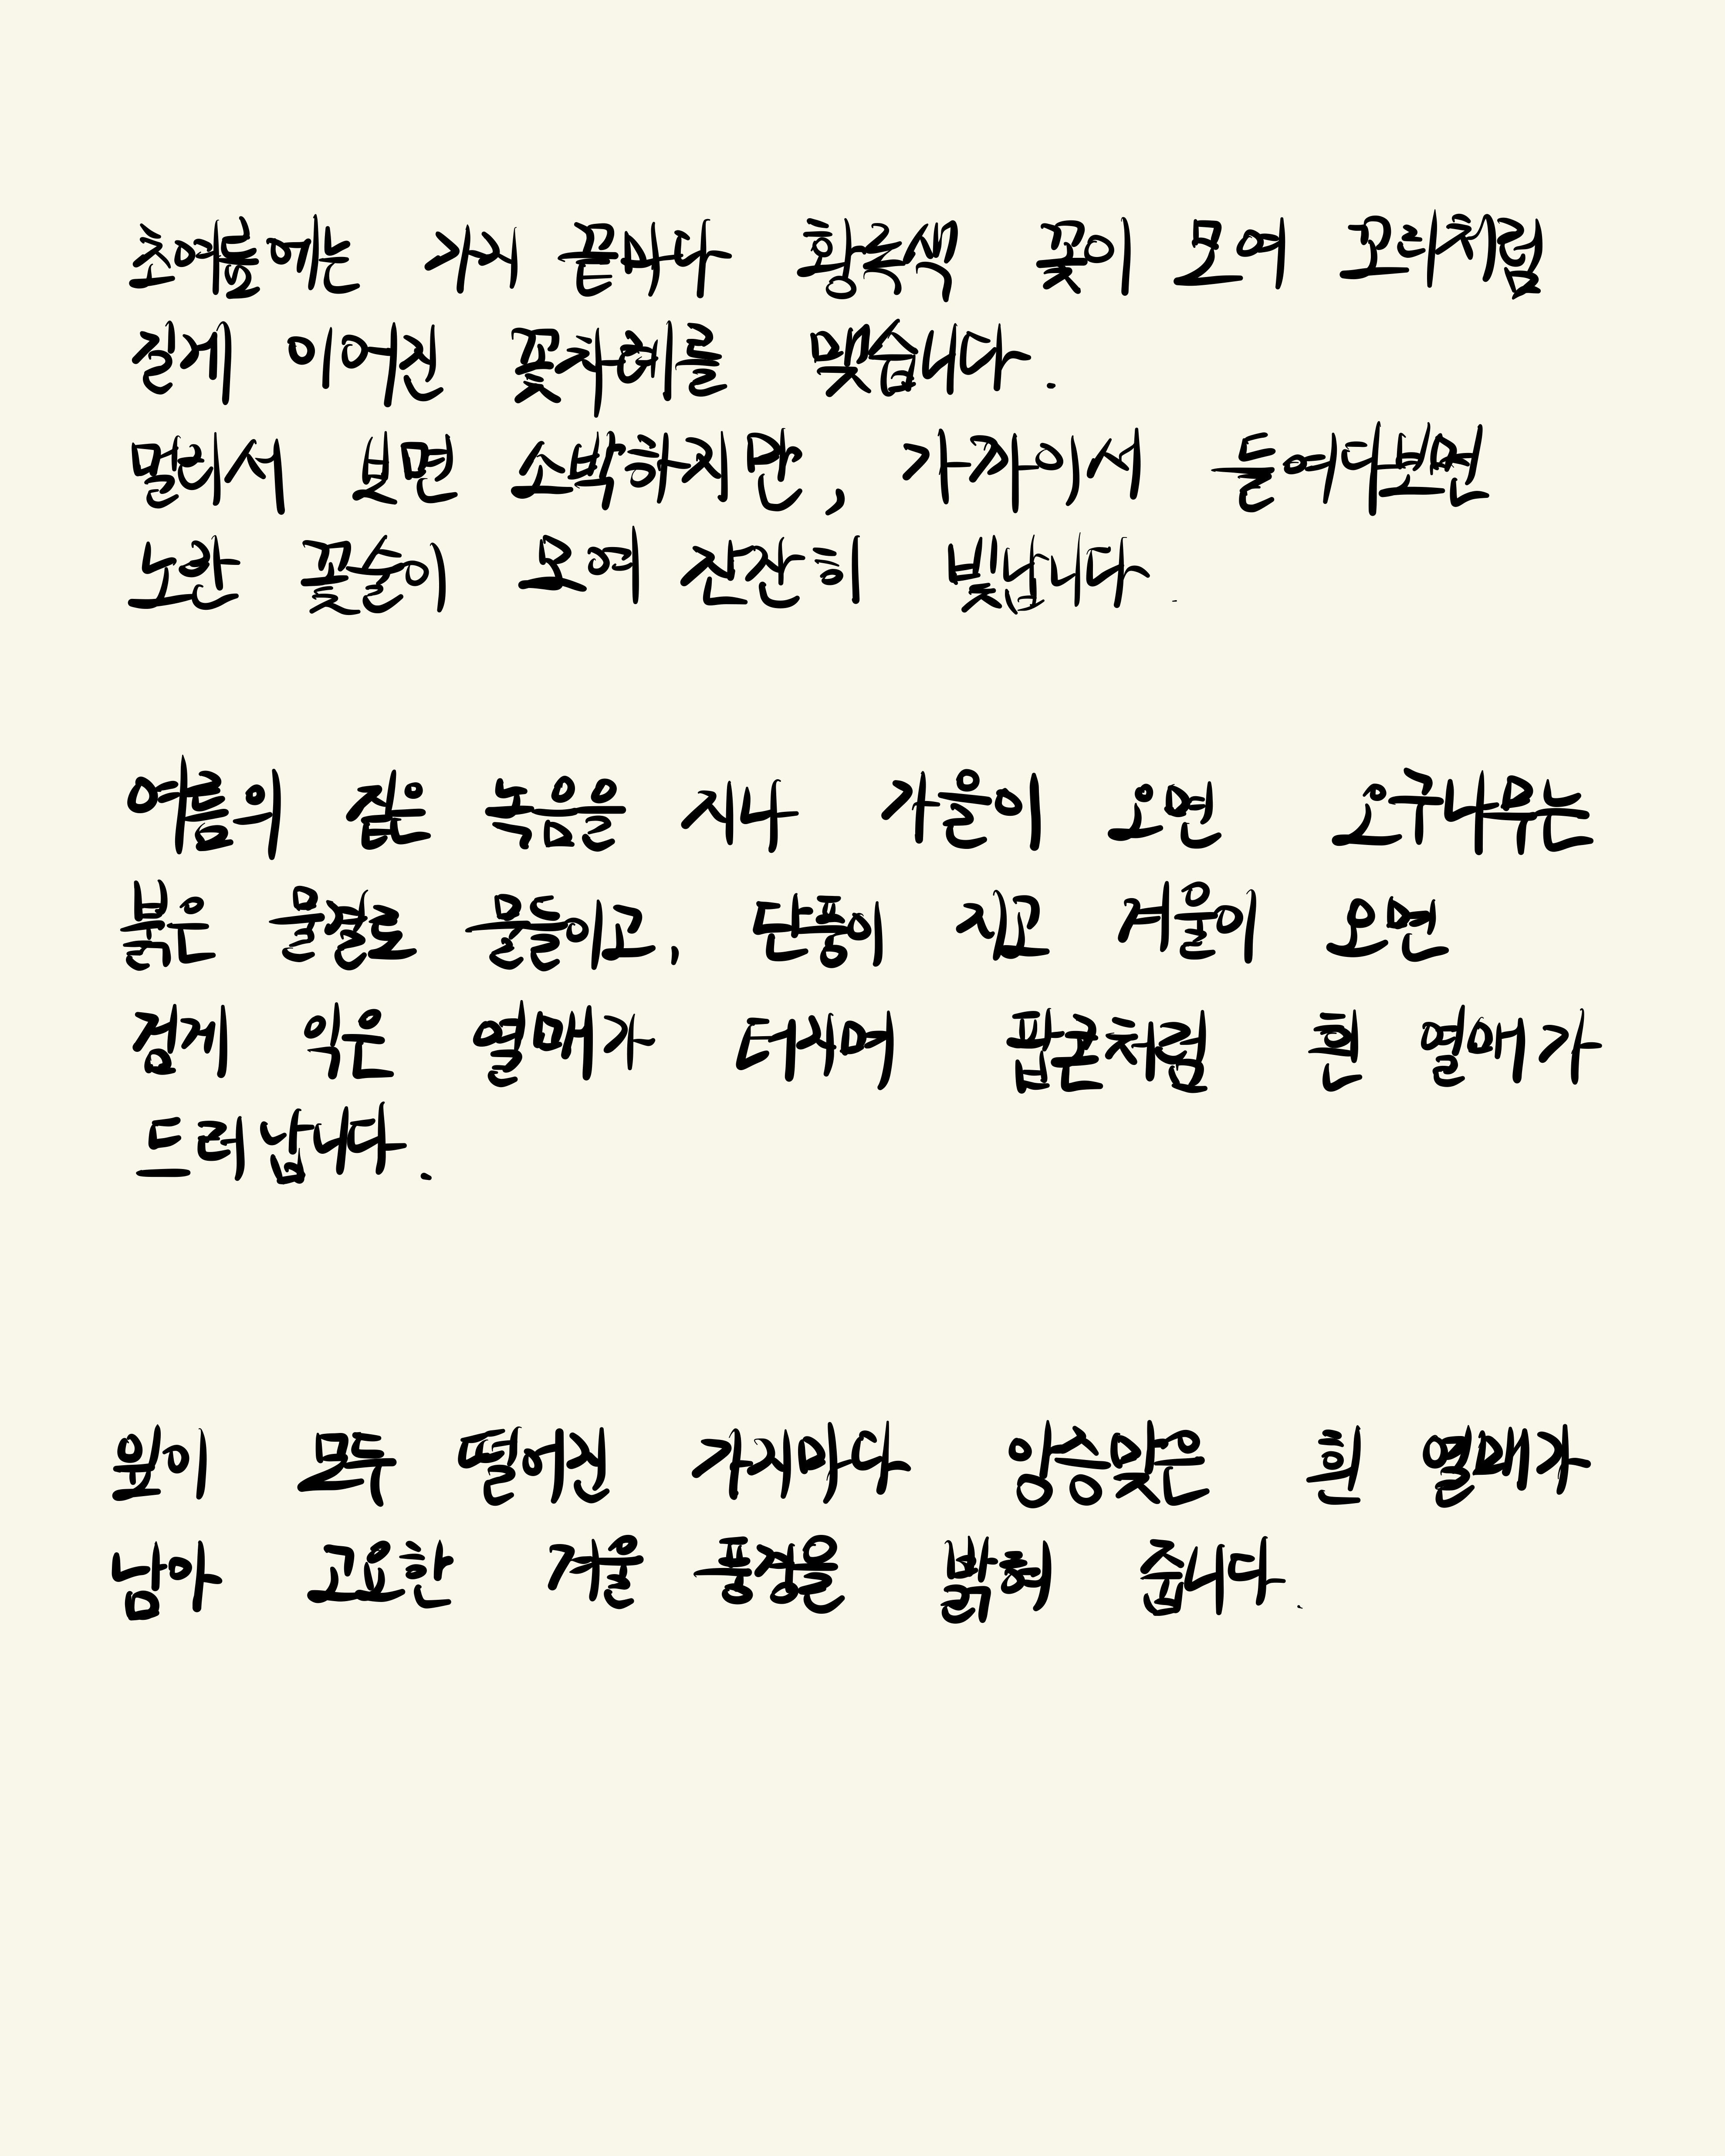 초여름에는 가지 끝마다 황록색 꽃이 모여 꼬리처럼
길게 이어진 꽃차례를 맺습니다.
멀리서 보면 소박하지만, 가까이서 들여다보면
노란 꽃술이 모여 잔잔히 빛납니다.
여름의 짙은 녹음을 지나 가을이 오면 오구나무는
붉은 물결로 물들이고, 단풍이 지고 겨울이 오면
검게 익은 열매가 터지며 팝콘처럼 흰 열매가
드러납니다.
잎이 모두 떨어진 가지마다 앙증맞은 흰 열매가
남아 고요한 겨울 풍경을 밝혀 줍니다.